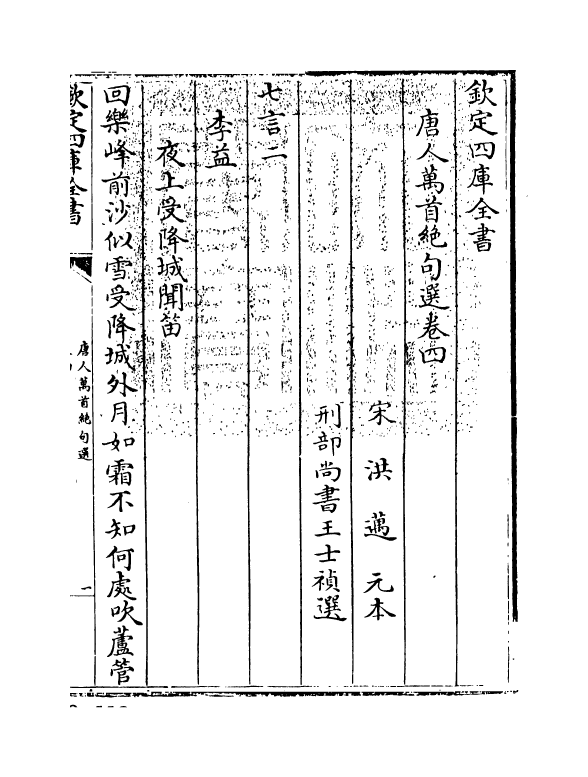 欽定四庫全書
唐人萬首絶句選卷四
宋 洪邁 元本
刑部尚書王士禎選
七言二
李益
夜上受降城聞笛
回樂峰前沙似雪受降城外月如霜不知何處吹蘆管
欽定四庫全書
唐人萬首絶句選
一